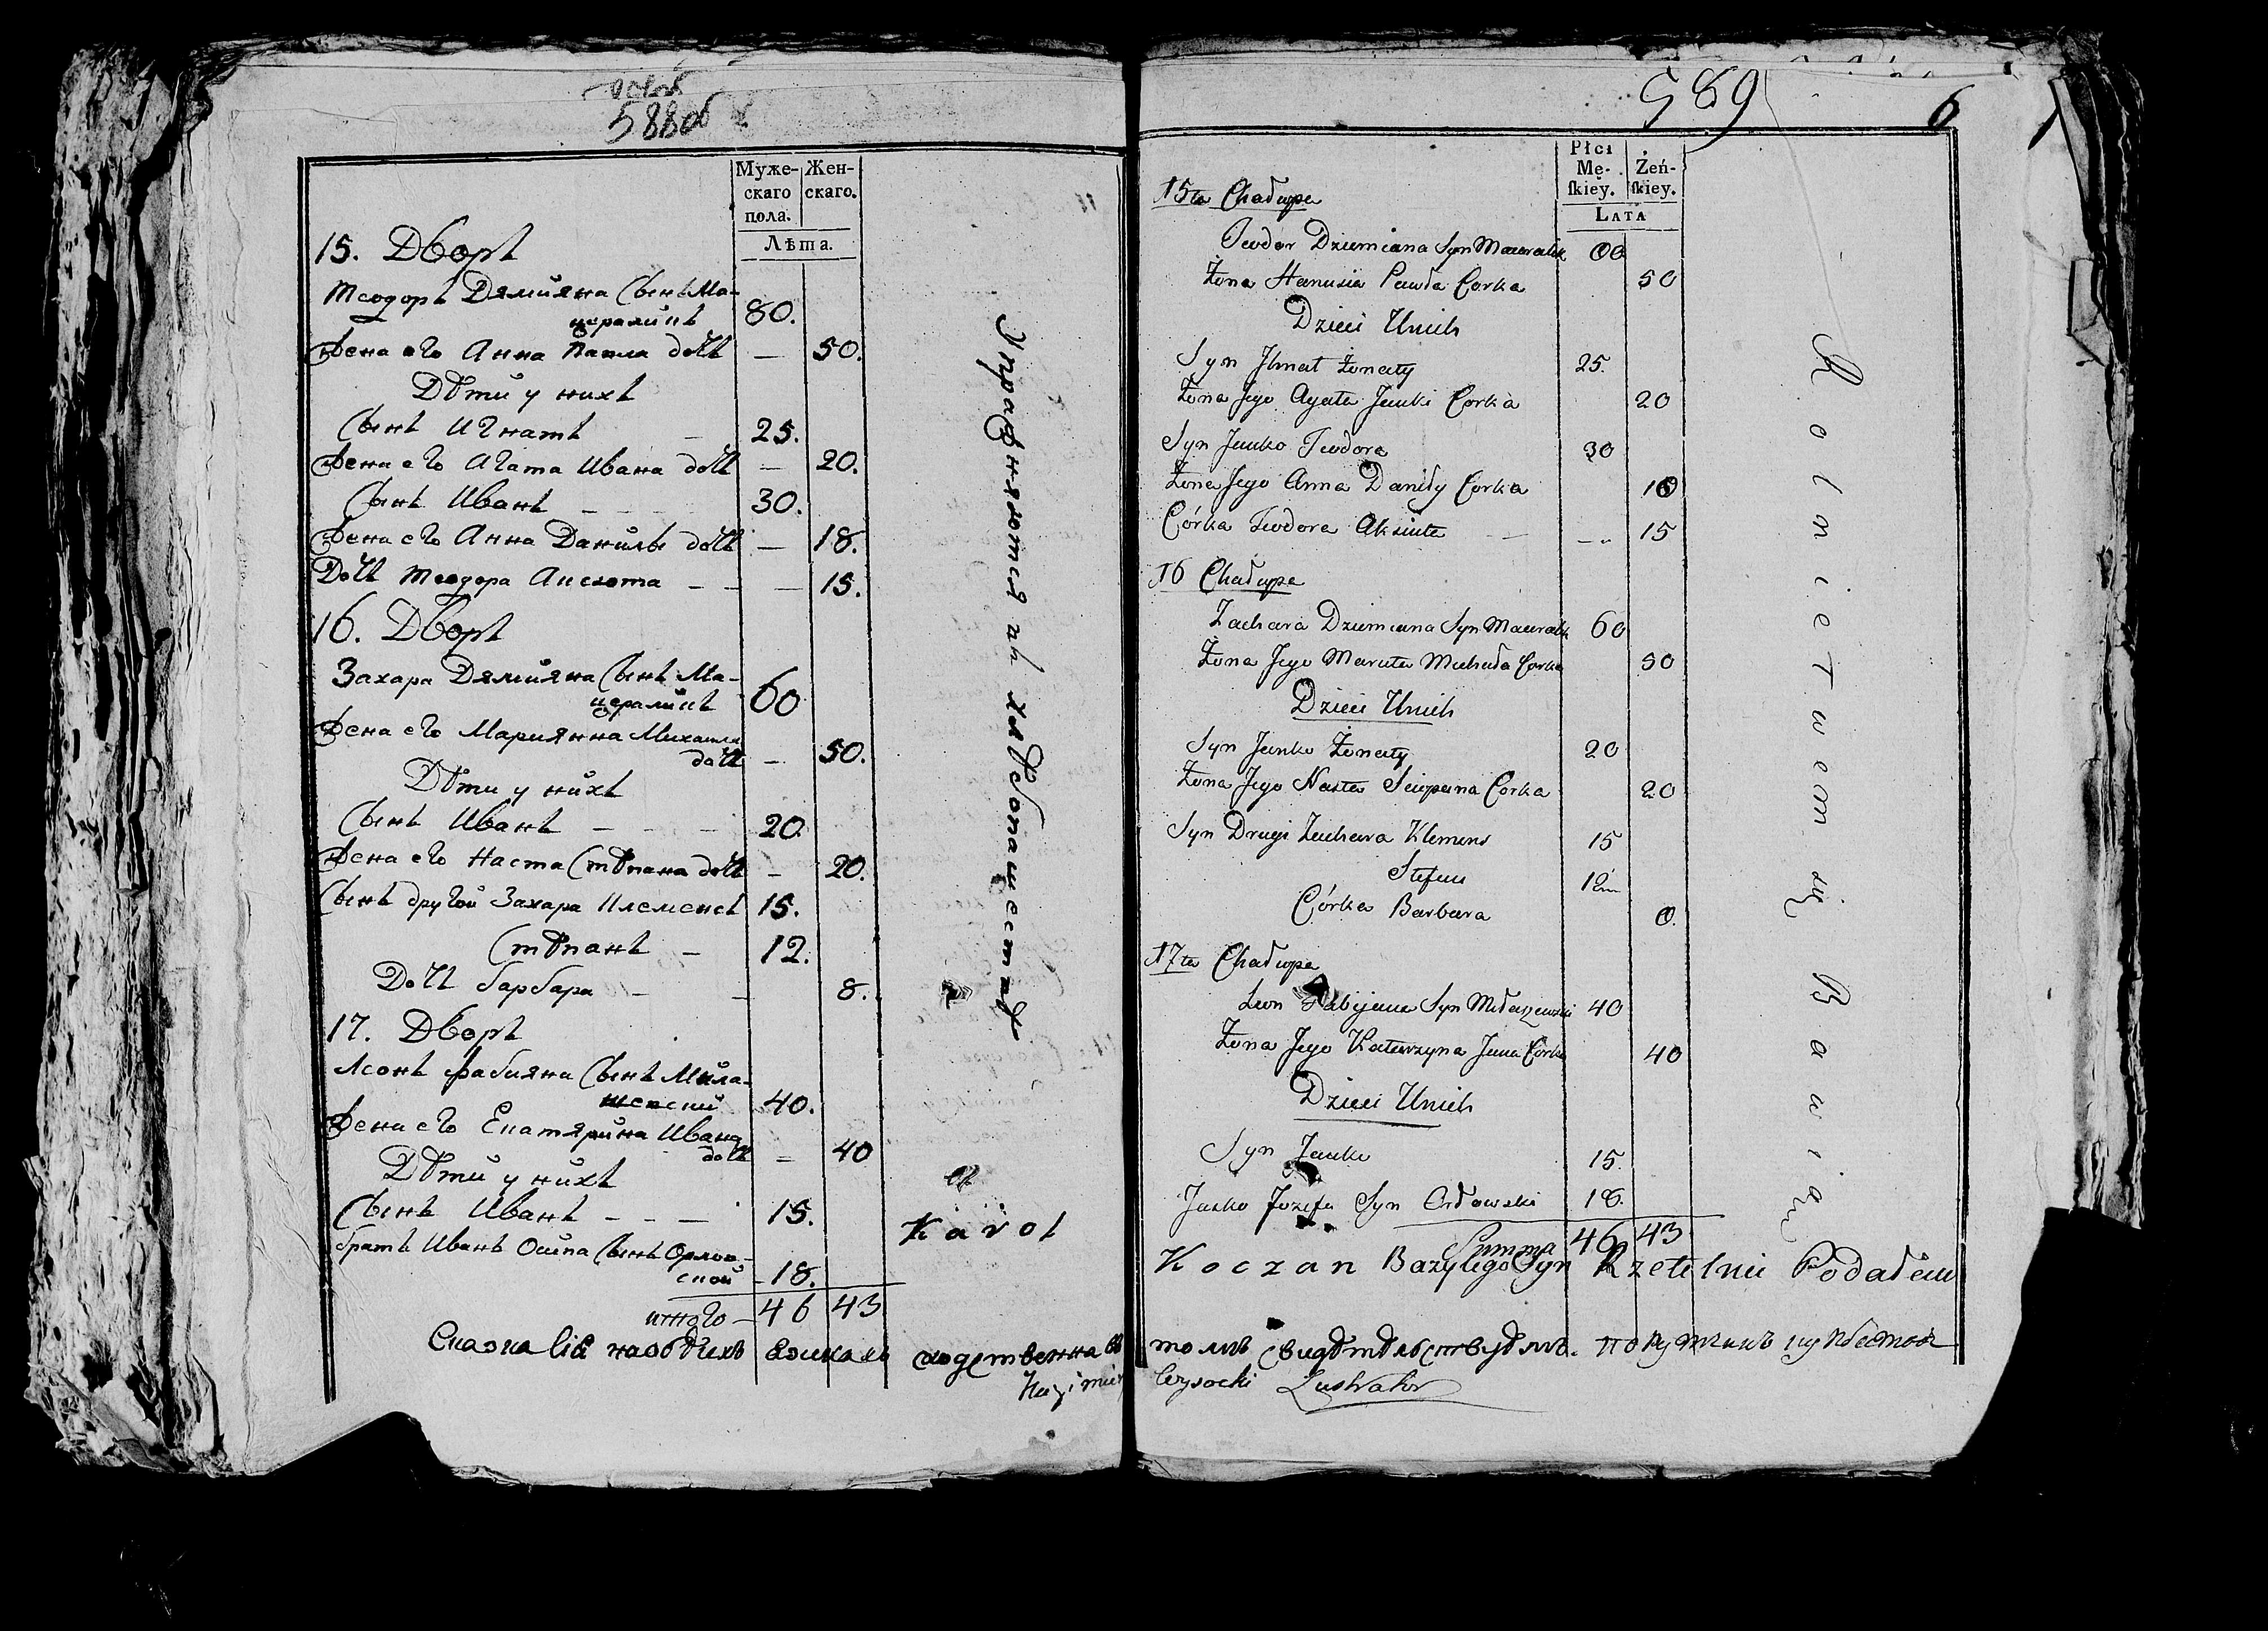 588об
Муже- Жен-
скаго скаго.
пола.
Лѣта.
15. Дворъ
Теодоръ Дямияна Сынъ Ма-
церликъ 80.
Жена его Анна Павла дочь — 50.
Дѣти у нихъ
Сынъ Игнатъ — 25.
Жена его Агата Ивана дочь — 20.
Сынъ Иванъ — 30.
Жена его Анна Данилы дочь — 18.
Дочь Теодора Аксюта — — 15.
16. Дворъ
Захара Дямияна Сынъ Ма-
церликъ 60
Жена его Мариянна Михайла
дочь — 50.
Дѣти у нихъ
Сынъ Иванъ — 20.
Жена его Наста Стѣпана дочь — 20.
Сынъ другой Захара Клеменсъ 15.
Стѣпанъ — 12.
Дочь барбара — 8.
17. Дворъ
Леонъ фабияна Сынъ Мила-
шевский 40.
Жена его Екатярина Ивана
дочь — 40
Дѣти у нихъ
Сынъ Иванъ — 15.
братъ Иванъ Осипа Сынъ Орлов-
ской — 18.
итого — 46 43
Упражняются въ хлѣбопашествѣ
Karol
Сказка сія на обѣихъ
Kazimierz
589
6
Płci
Mę- Żeń-
ſkiey. ſkiey.
LATA
15ta Chałupa
Teodor Dziemiana Syn 80
Żona Hanusia Pawła Corka 50
Dzieci Unich
Syn Jhnat Żonaty 25.
Żona Jego Agata Janki Corka 20
Syn Janko Teodora 30
Żona Jego Anna Daniły Corka 18
Córka Teodora Aksiuta — 15
16 Chałupa
Zachara Dziemiana Syn 60
Żona Jego Maruta Michała Corka 50
Dzieci Unich
Syn Janko Żonaty 20
Żona Jego Nasta Sciepana Corka 20
Syn Drugi Zachara Klemens 15
Stefan 12
Córka Barbara 8.
17ta Chałupa
Leon Fabijana Syn Miłaszewski 40
Żona Jego Katarzyna Jana Corka 40
Dzieci Unich
Syn Janko 15.
Jasko Jozefa Syn Orłowski 18.
Summa 46 43
Rolnictwem się Bawią
Koczan Bazylego Syn Rzetelnie Podałem
томъ свидѣтѣльствуемъ.
Wysocki Lustrator